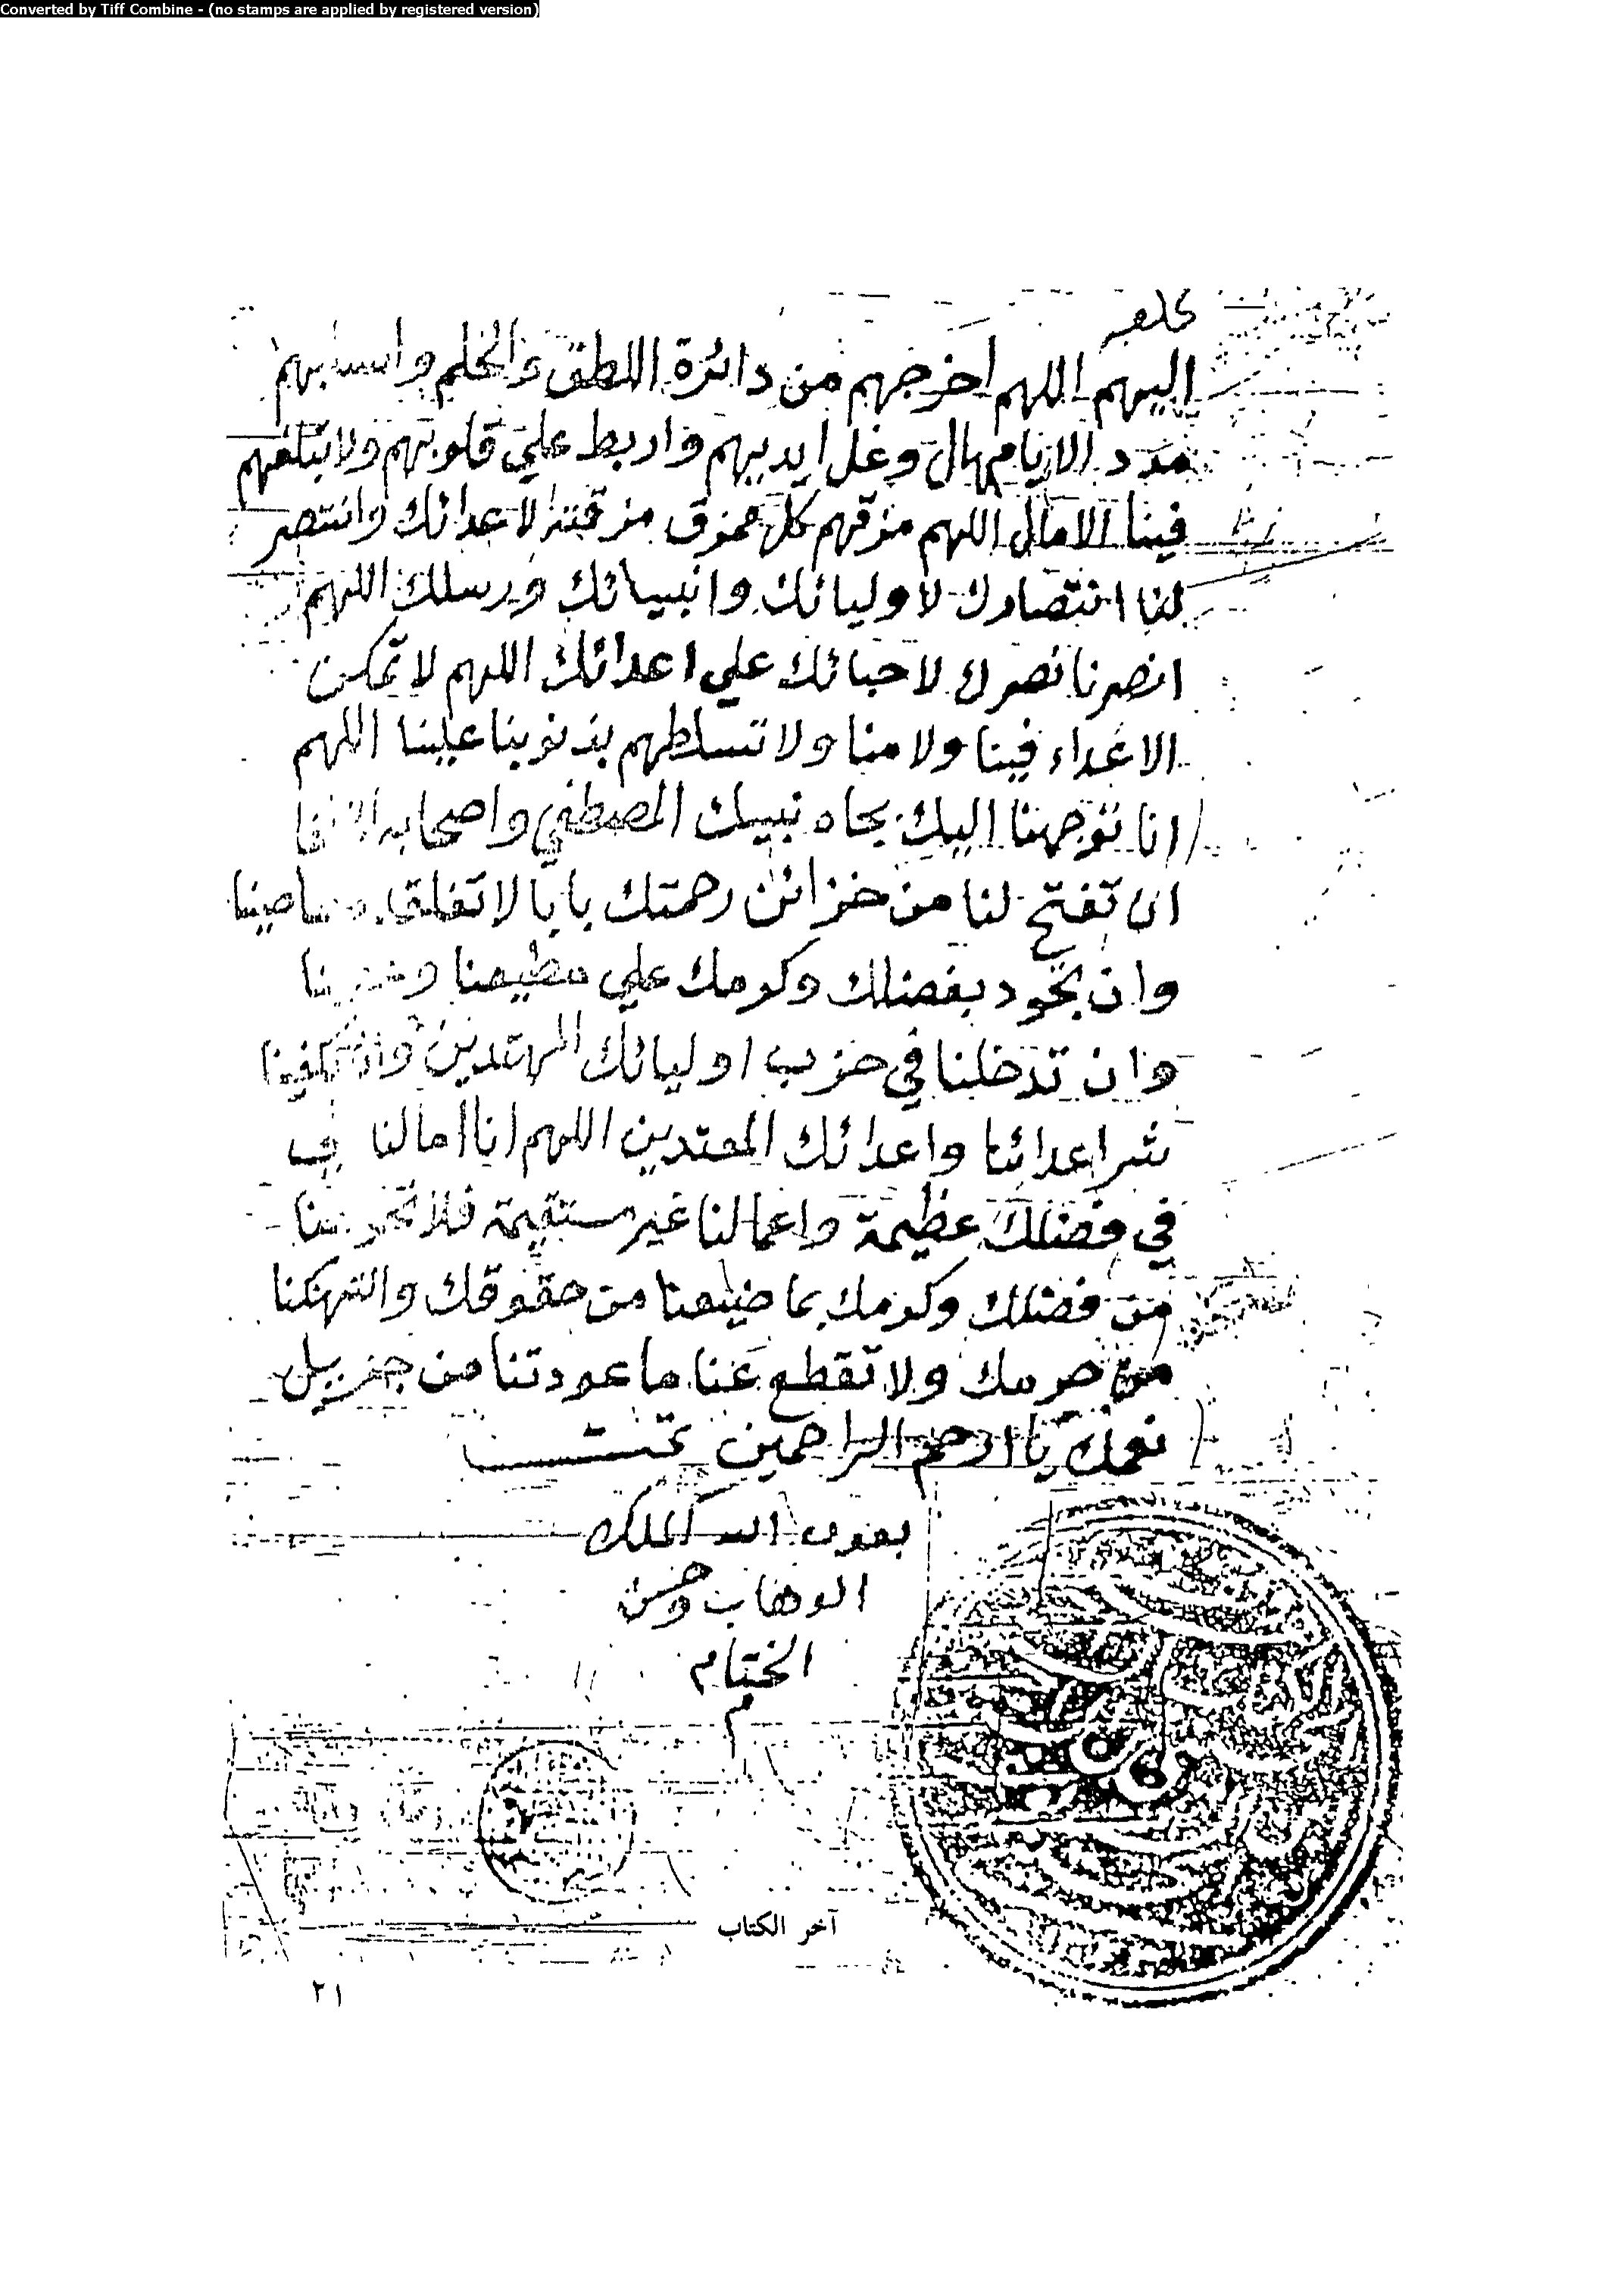 Converted by Tiff Combine - (no stamps are applied by registered version)
اليهم اللهم اخرجهم من دائرة اللطف والحلم واسلبهم
مدد الامهال وغل ايديهم واربط علي قلوبهم ولا تبلغهم
فينا الامال اللهم مزقهم كل ممزق مزقته لاعدائك وانتصر
لنا انتصارك لاوليائك وانبيائك ورسلك اللهم
انصرنا نصرك لاحبائك علي اعدائك اللهم لا تمكن
الاعداء فينا ولا منا ولا تسلطهم بذنوبنا علينا اللهم
انا توجهنا اليك بجاه نبيك المصطفي واصحابه
ان تفتح لنا من خزائن رحمتك بابا لا تغلقه
وان تجود بفضلك وكرمك علي مطيعنا
وان تدخلنا في حزب اوليائك المهتدين وان تكفينا
شر اعدائنا واعدائك المعتدين اللهم ان امالنا
في فضلك عظيمة واعمالنا غير مستقيمة فلا تحرمنا
من فضلك وكرمك بما ضيعنا من حقوقك وانتهكنا
من حرمك ولا تقطع عنا ما عودتنا من جزيل
نعمك يا ارحم الراحمين تمت
بعون الله الملك
الوهاب وحسن
الختام
م
آخر الكتاب
٢١